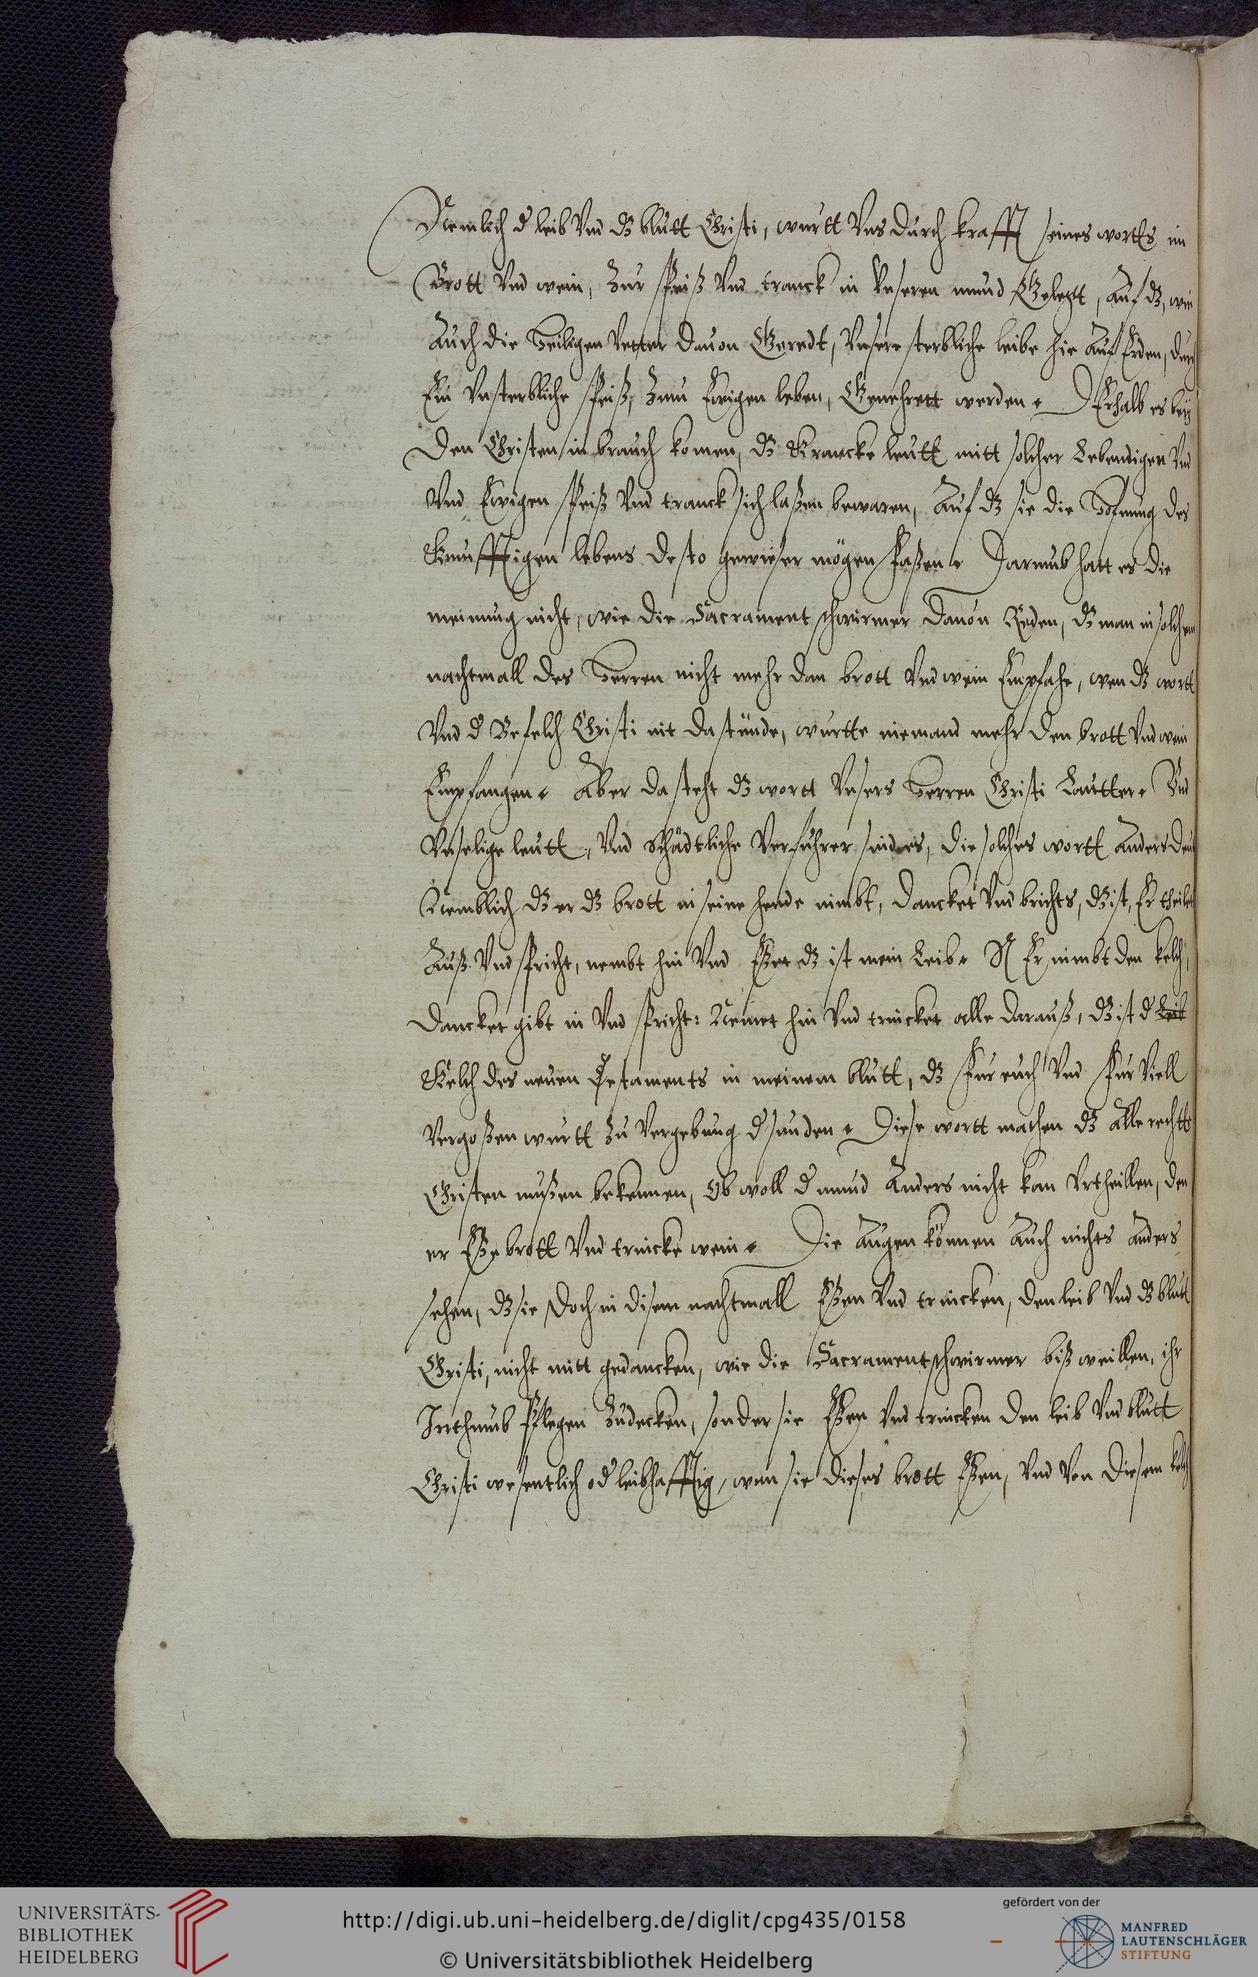 Nemlich d leib Vnd dz blutt Christi, wurtt Vns durch krafft seines worts im
Brott Vnd wein, Zur speiß Vnd tranck in Vnseren mund Gelegtt, Auf dz, wie
Auch die Heiligen Vetter dauon Geredt, Vnsere sterbliche leibe hie Auf Erden, durch
Ein Vnsterbliche speiß, Zum Ewigen leben, Genehrett werden. DErhalb es bey
Den Christen in brauch komen, dz Krancke leutt mitt solcher Lebendigen Vnd
Vnd Ewigen speiß Vnd tranck sich laßen bewaren, Auf dz sie die Hofnung des
Kunfftigen lebens desto gewißer mögen faßen. Darumb hatt es die
meinung nicht, wie die Sacrament schwirmer dauon Reden, dz man in solchem
nachtmall des Herren nicht mehr dan brott Vnd wein Empfahe, wen dz wortt
Vnd d Befelch Christi nit da stünde, wurtte niemand mehr den brott Vnd wein
Empfangen. Aber da steht dz wortt Vnsers Herren Christi Lautter. Vnd
Vnselige leutt, Vnd Schädtliche Verfuhrer sind es, die solches wortt Anders
Nemblich dz er dz brott in seine hende nimbt, dancket Vnd brichts, dz ist, Er theilet
Auß Vnd spricht, nembt hin Vnd Eßet dz ist mein Leib. Er nimbt den kelch,
Dancket gibt in Vnd spricht: Nemet hin Vnd trincket alle darauß, dz ist d Leib
Kelch des neuen Testaments in meinem blutt, dz fur euch Vnd fur Viell
Vergoßen wurtt Zu Vergebung d sunden. Diese wortt machen dz Alle rechtt
Christen mußen bekennen, Ob woll d mund Anders nicht kan Vrtheillen, den
er Eße brott Vnd trincke wein. Die Augen können Auch nichts anders
sehen, dz sie doch in disem nachtmall Eßen Vnd trincken, den leib Vnd dz blutt
Christi, nicht mitt gedancken, wie die Sacramentschwirmer bißweillen, ihr
Irthumb pflegen Zudecken, sonder sie Eßen Vnd trincken den leib Vnd blutt
Christi wesentlich od leibhafftig, wan sie dieses brott Eßen, Vnd Von diesem kelch
UNIVERSITÄTS-
BIBLIOTHEK
HEIDELBERG
http://digi.ub.uni-heidelberg.de/diglit/cpg435/0158
© Universitätsbibliothek Heidelberg
gefördert von der
MANFRED
LAUTENSCHLÄGER
STIFTUNG